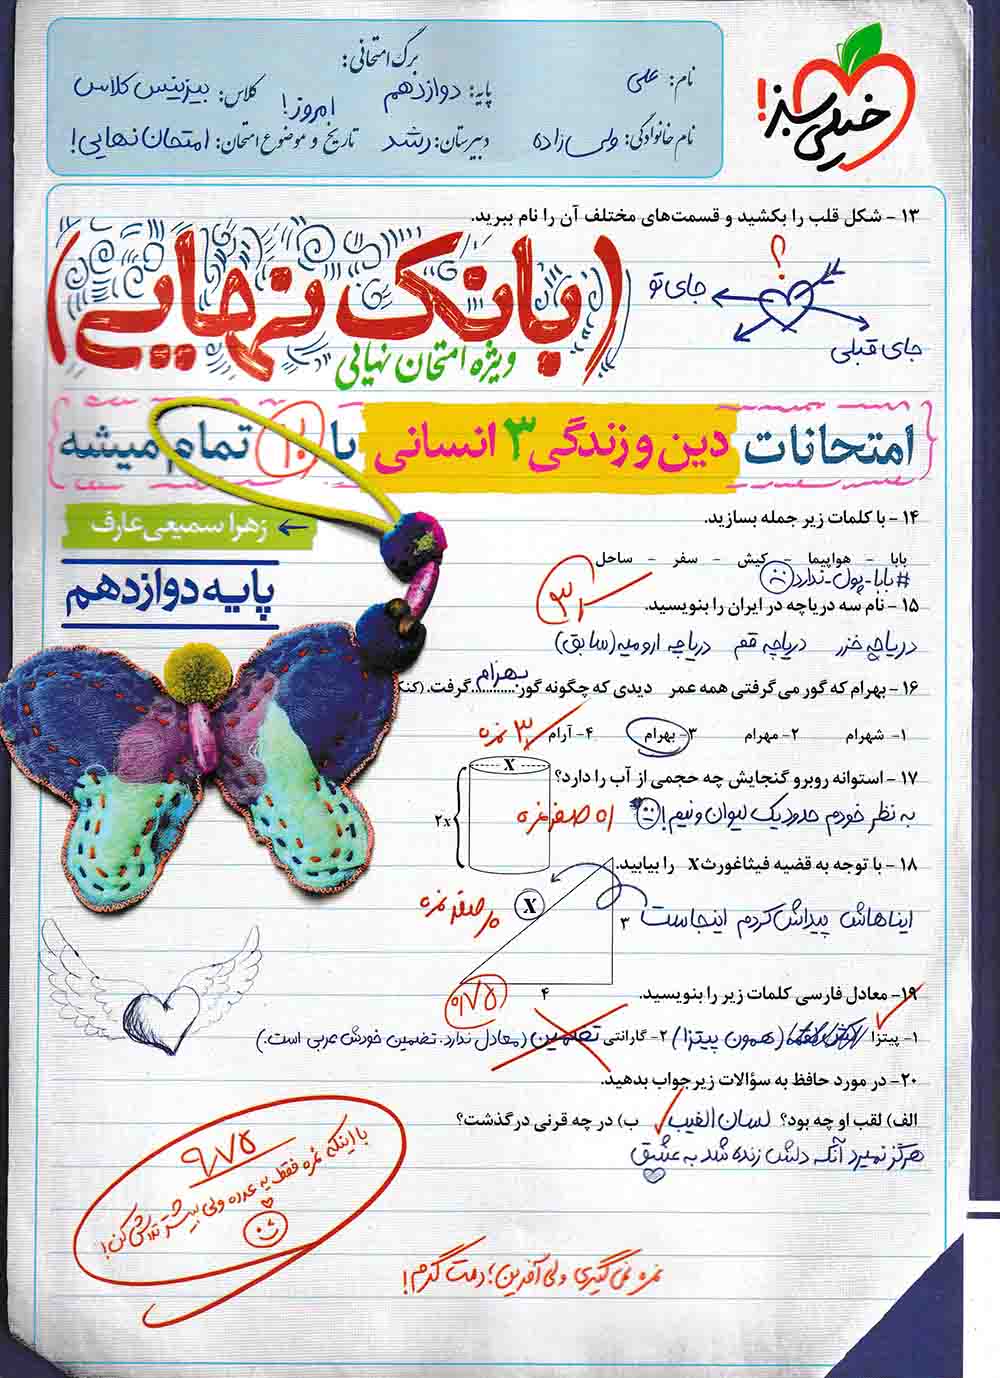 خیلی سبز!
برگ امتحانی:
نام: علی
پایه: دوازدهم
کلاس: بیزینس کلاس
نام خانوادگی: ولی زاده
دبیرستان: رشد
تاریخ و موضوع امتحان: امتحان نهایی!
امروز!
۱۳ - شکل قلب را بکشید و قسمت‌های مختلف آن را نام ببرید.
؟
جای تو
جای قبلی
(بانک نهایی)
ویژه امتحان نهایی
امتحانات دین و زندگی ۳ انسانی با ۱۰ تمام میشه
زهرا سمیعی عارف
پایه دوازدهم
۱۴ - با کلمات زیر جمله بسازید.
بابا - هواپیما - کیش - سفر - ساحل
#بابا-پول-ندارد
۱۵ - نام سه دریاچه در ایران را بنویسید.
دریاچه خزر دریاچه قم دریاچه ارومیه (سابق)
۱۶ - بهرام که گور می گرفتی همه عمر دیدی که چگونه گور: بهرام گرفت. (کنک
۱- شهرام ۲- مهرام ۳- بهرام ۴- آرام
۳ نمره
۱۷ - استوانه روبرو گنجایش چه حجمی از آب را دارد؟
X
۲x
به نظر خودم حدود یک لیوان و نیم!
صفر نمره
۱۸ - با توجه به قضیه فیثاغورث X را بیابید.
X
۳
۴
ایناهاش پیداش کردم اینجاست
صفر نمره
۱۹- معادل فارسی کلمات زیر را بنویسید.
۰/۷۵
۱- پیتزا (همون پیتزا) ۲- گارانتی تضمین (معادل ندارد. تضمین خودش عربی است.)
۲۰- در مورد حافظ به سؤالات زیر جواب بدهید.
الف) لقب او چه بود؟ لسان الغیب ب) در چه قرنی درگذشت؟
هرگز نمیرد آنکه دلش زنده شد به عشق
۹/۷۵
با اینکه نمره فقط یه عدده ولی بیشتر تلاش کن!
نمره نمی گیری ولی آفرین؛ دمت گرم!